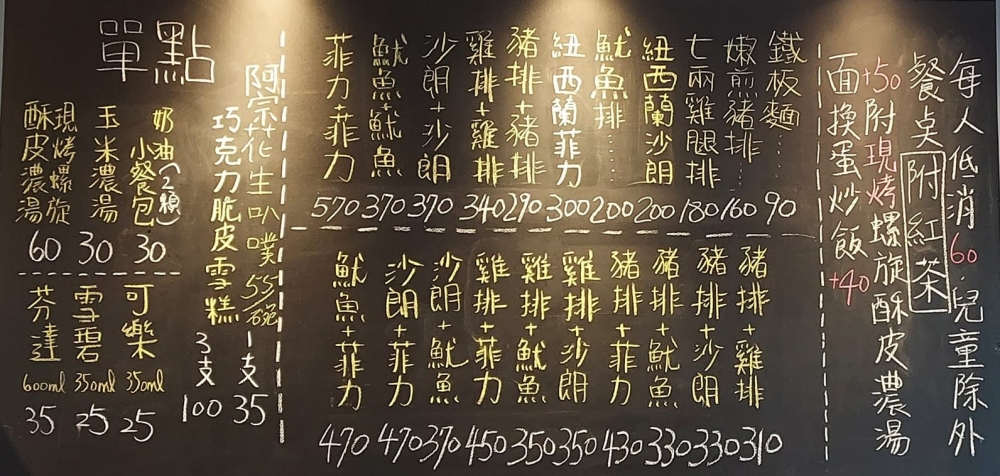 每人低消60.兒童除外
餐奌附紅茶
+50附現烤螺旋酥皮濃湯
面換蛋炒飯+40
鐵板麵...90
嫩煎豬排...160
七兩雞腿排180
紐西蘭沙朗200
魷魚排......200
紐西蘭菲力300
豬排+豬排290
雞排+雞排340
沙朗+沙朗370
魷魚+魷魚370
菲力+菲力570
豬排+雞排310
豬排+沙朗330
豬排+魷魚330
豬排+菲力430
雞排+沙朗350
雞排+魷魚350
雞排+菲力450
沙朗+魷魚370
沙朗+菲力470
魷魚+菲力470
單點
阿宗花生叭噗55/碗
巧克力脆皮雪糕
1支35
3支100
奶油小餐包(2顆)30
玉米濃湯30
現烤螺旋酥皮濃湯60
可樂350ml25
雪碧350ml25
芬達600ml35